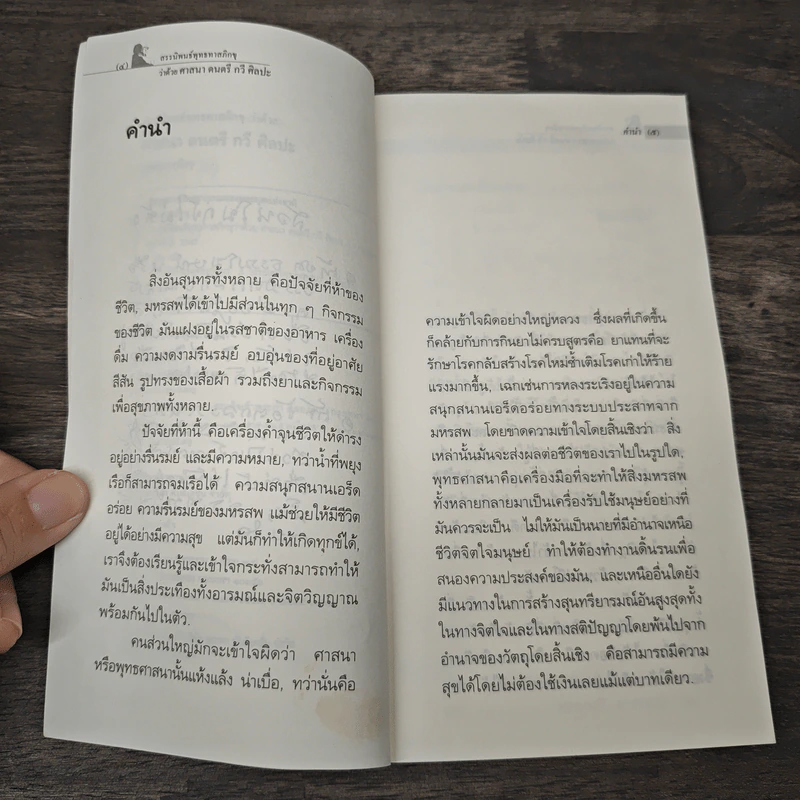 (๔)
สรรนิพนธ์พุทธทาสภิกขุ
ว่าด้วย ศาสนา ดนตรี กวี ศิลปะ
คำนำ
สิ่งอันสุนทรทั้งหลาย คือปัจจัยที่ห้าของ
ชีวิต, มหรสพได้เข้าไปมีส่วนในทุก ๆ กิจกรรม
ของชีวิต มันแฝงอยู่ในรสชาติของอาหาร เครื่อง
ดื่ม ความงดงามรื่นรมย์ อบอุ่นของที่อยู่อาศัย
สีสัน รูปทรงของเสื้อผ้า รวมถึงยาและกิจกรรม
เพื่อสุขภาพทั้งหลาย.
ปัจจัยที่ห้านี้ คือเครื่องค้ำจุนชีวิตให้ดำรง
อยู่อย่างรื่นรมย์ และมีความหมาย, ทว่าน้ำที่พยุง
เรือก็สามารถจมเรือได้ ความสนุกสนานเอร็ด
อร่อย ความรื่นรมย์ของมหรสพ แม้ช่วยให้มีชีวิต
อยู่ได้อย่างมีความสุข แต่มันก็ทำให้เกิดทุกข์ได้,
เราจึงต้องเรียนรู้และเข้าใจกระทั่งสามารถทำให้
มันเป็นสิ่งประเทืองทั้งอารมณ์และจิตวิญญาณ
พร้อมกันไปในตัว.
คนส่วนใหญ่มักจะเข้าใจผิดว่า ศาสนา
หรือพุทธศาสนานั้นแห้งแล้ง น่าเบื่อ, ทว่านั่นคือ
คำนำ (๕)
ความเข้าใจผิดอย่างใหญ่หลวง ซึ่งผลที่เกิดขึ้น
ก็คล้ายกับการกินยาไม่ครบสูตรคือ ยาแทนที่จะ
รักษาโรคกลับสร้างโรคใหม่ซ้ำเติมโรคเก่าให้ร้าย
แรงมากขึ้น, เฉกเช่นการหลงระเริงอยู่ในความ
สนุกสนานเอร็ดอร่อยทางระบบประสาทจาก
มหรสพ โดยขาดความเข้าใจโดยสิ้นเชิงว่า สิ่ง
เหล่านั้นมันจะส่งผลต่อชีวิตของเราไปในรูปใด,
พุทธศาสนาคือเครื่องมือที่จะทำให้สิ่งมหรสพ
ทั้งหลายกลายมาเป็นเครื่องรับใช้มนุษย์อย่างที่
มันควรจะเป็น ไม่ให้มันเป็นนายที่มีอำนาจเหนือ
ชีวิตจิตใจมนุษย์ ทำให้ต้องทำงานดิ้นรนเพื่อ
สนองความประสงค์ของมัน, และเหนืออื่นใดยัง
มีแนวทางในการสร้างสุนทรียารมณ์อันสูงสุดทั้ง
ในทางจิตใจและในทางสติปัญญาโดยพ้นไปจาก
อำนาจของวัตถุโดยสิ้นเชิง คือสามารถมีความ
สุขได้โดยไม่ต้องใช้เงินเลยแม้แต่บาทเดียว.